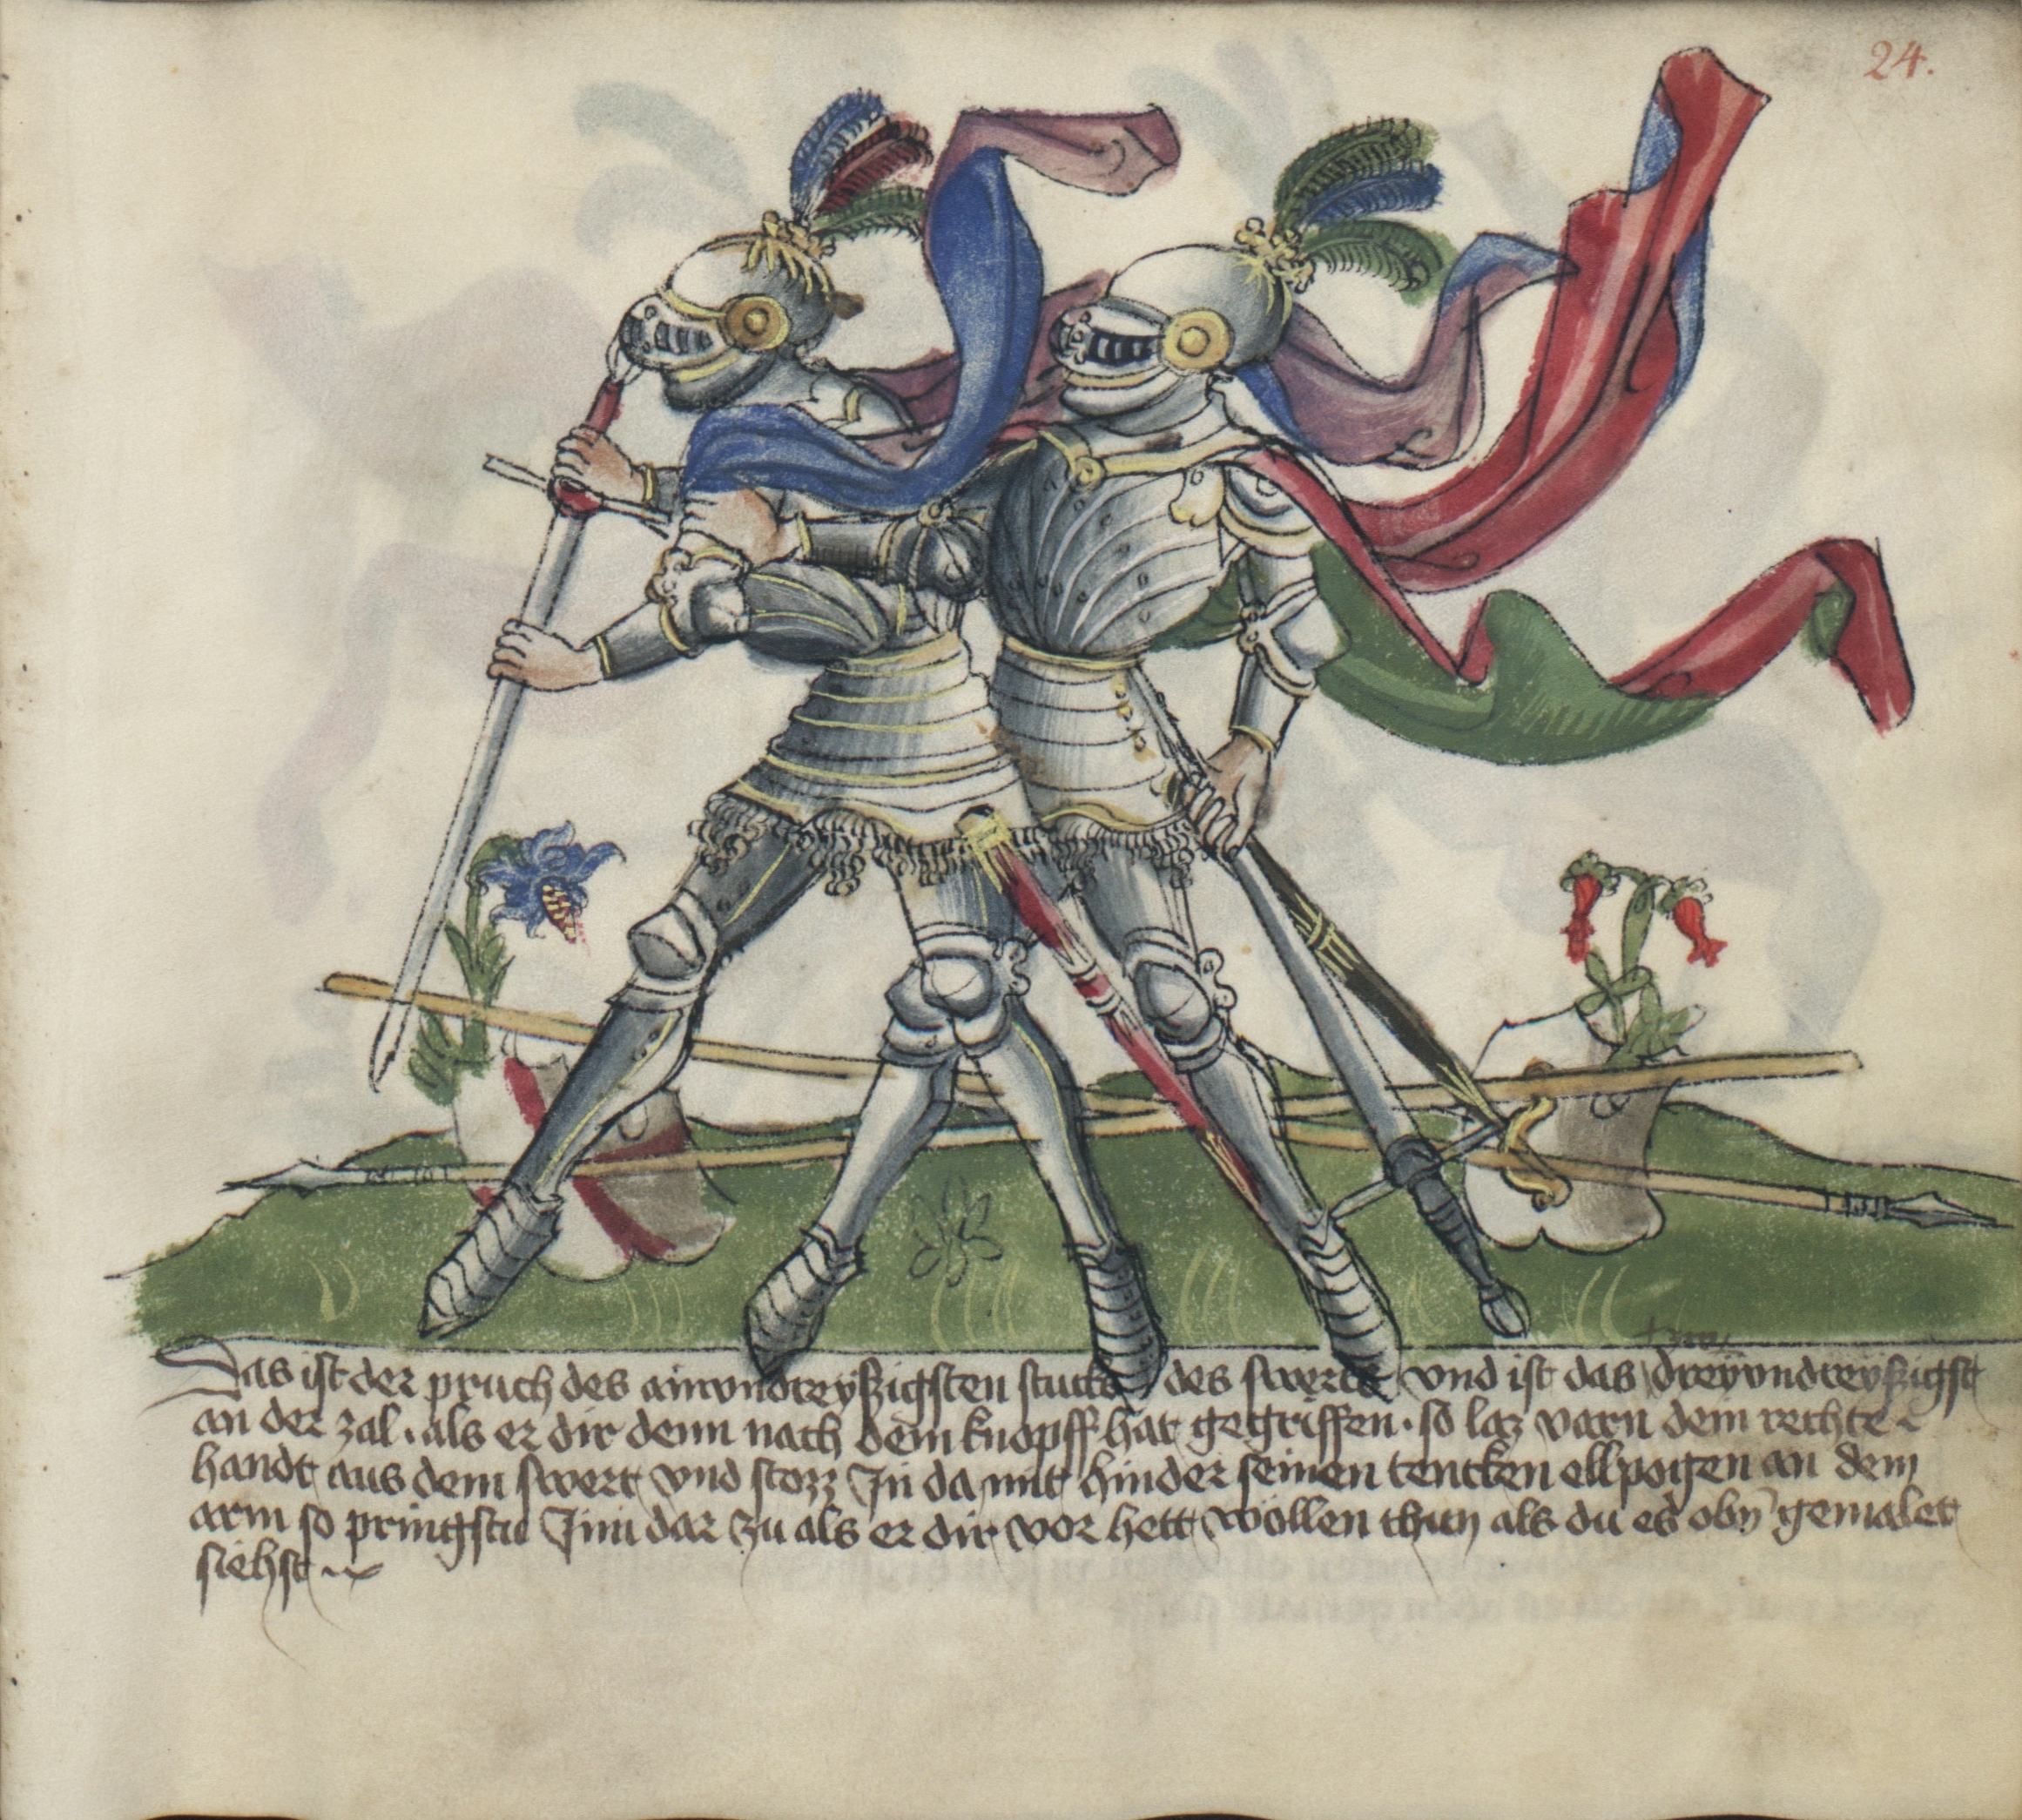 24.
zway
Das ist der pruch des ainvndreyßigsten stucks des swertz vnd ist das dreyvndreyßigst
an der zal · als er dir denn nach dem knopff hat gegriffen · so laz varn dein rechte
handt aus dem swert vnd stozz In da mit hinder seinen tencken ellpogen an dem
arm so pringstu Jmi dar zu als er dir vor hett wöllen thun als du es obn gemalet
siehst